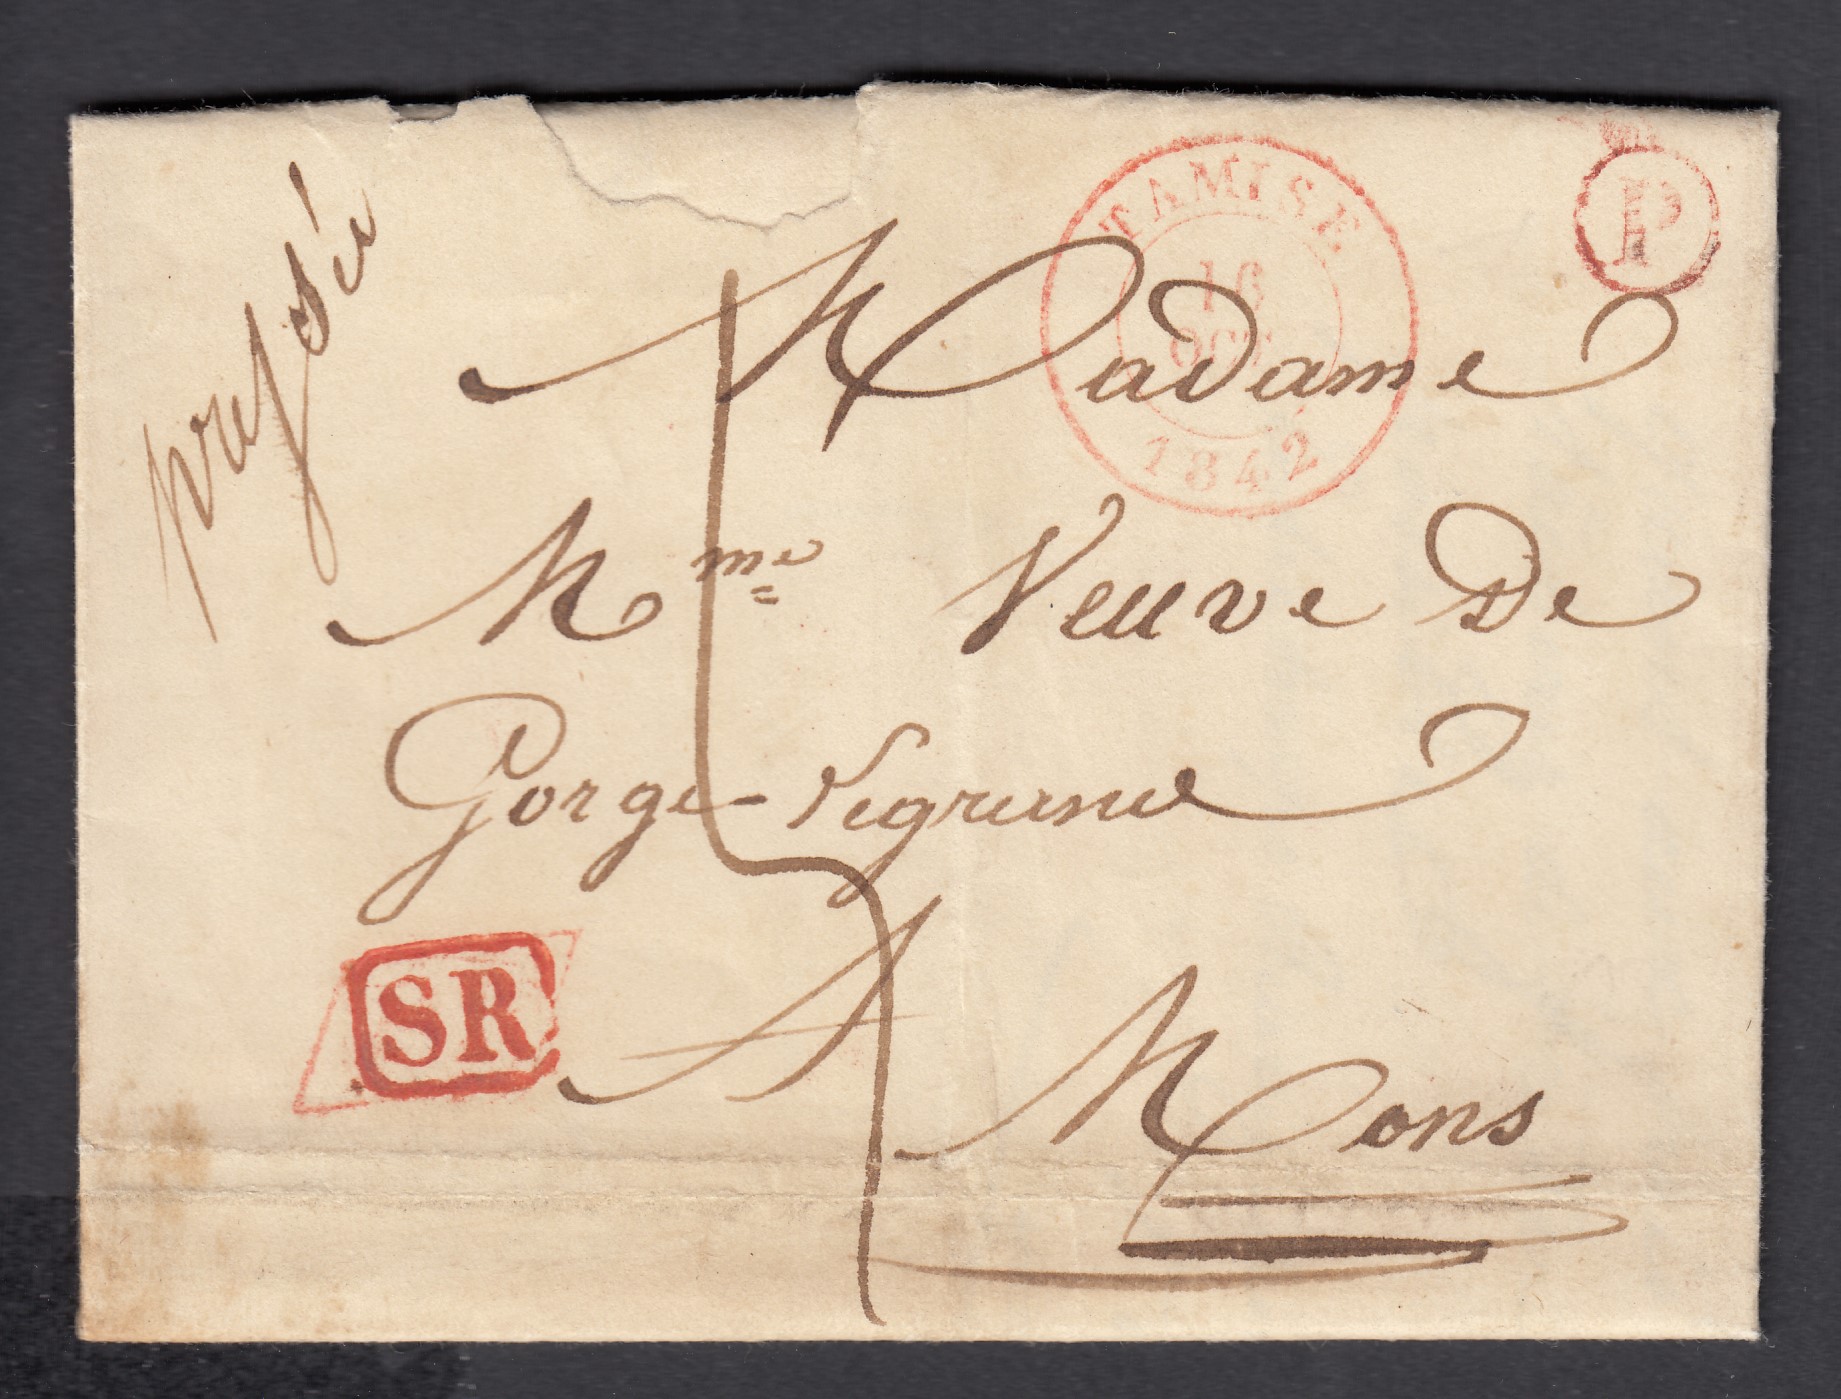 TAMISE
16
OCT
1842
P
Madame
Mme Veuve De
Gorge-Legrand
SR
A Mons